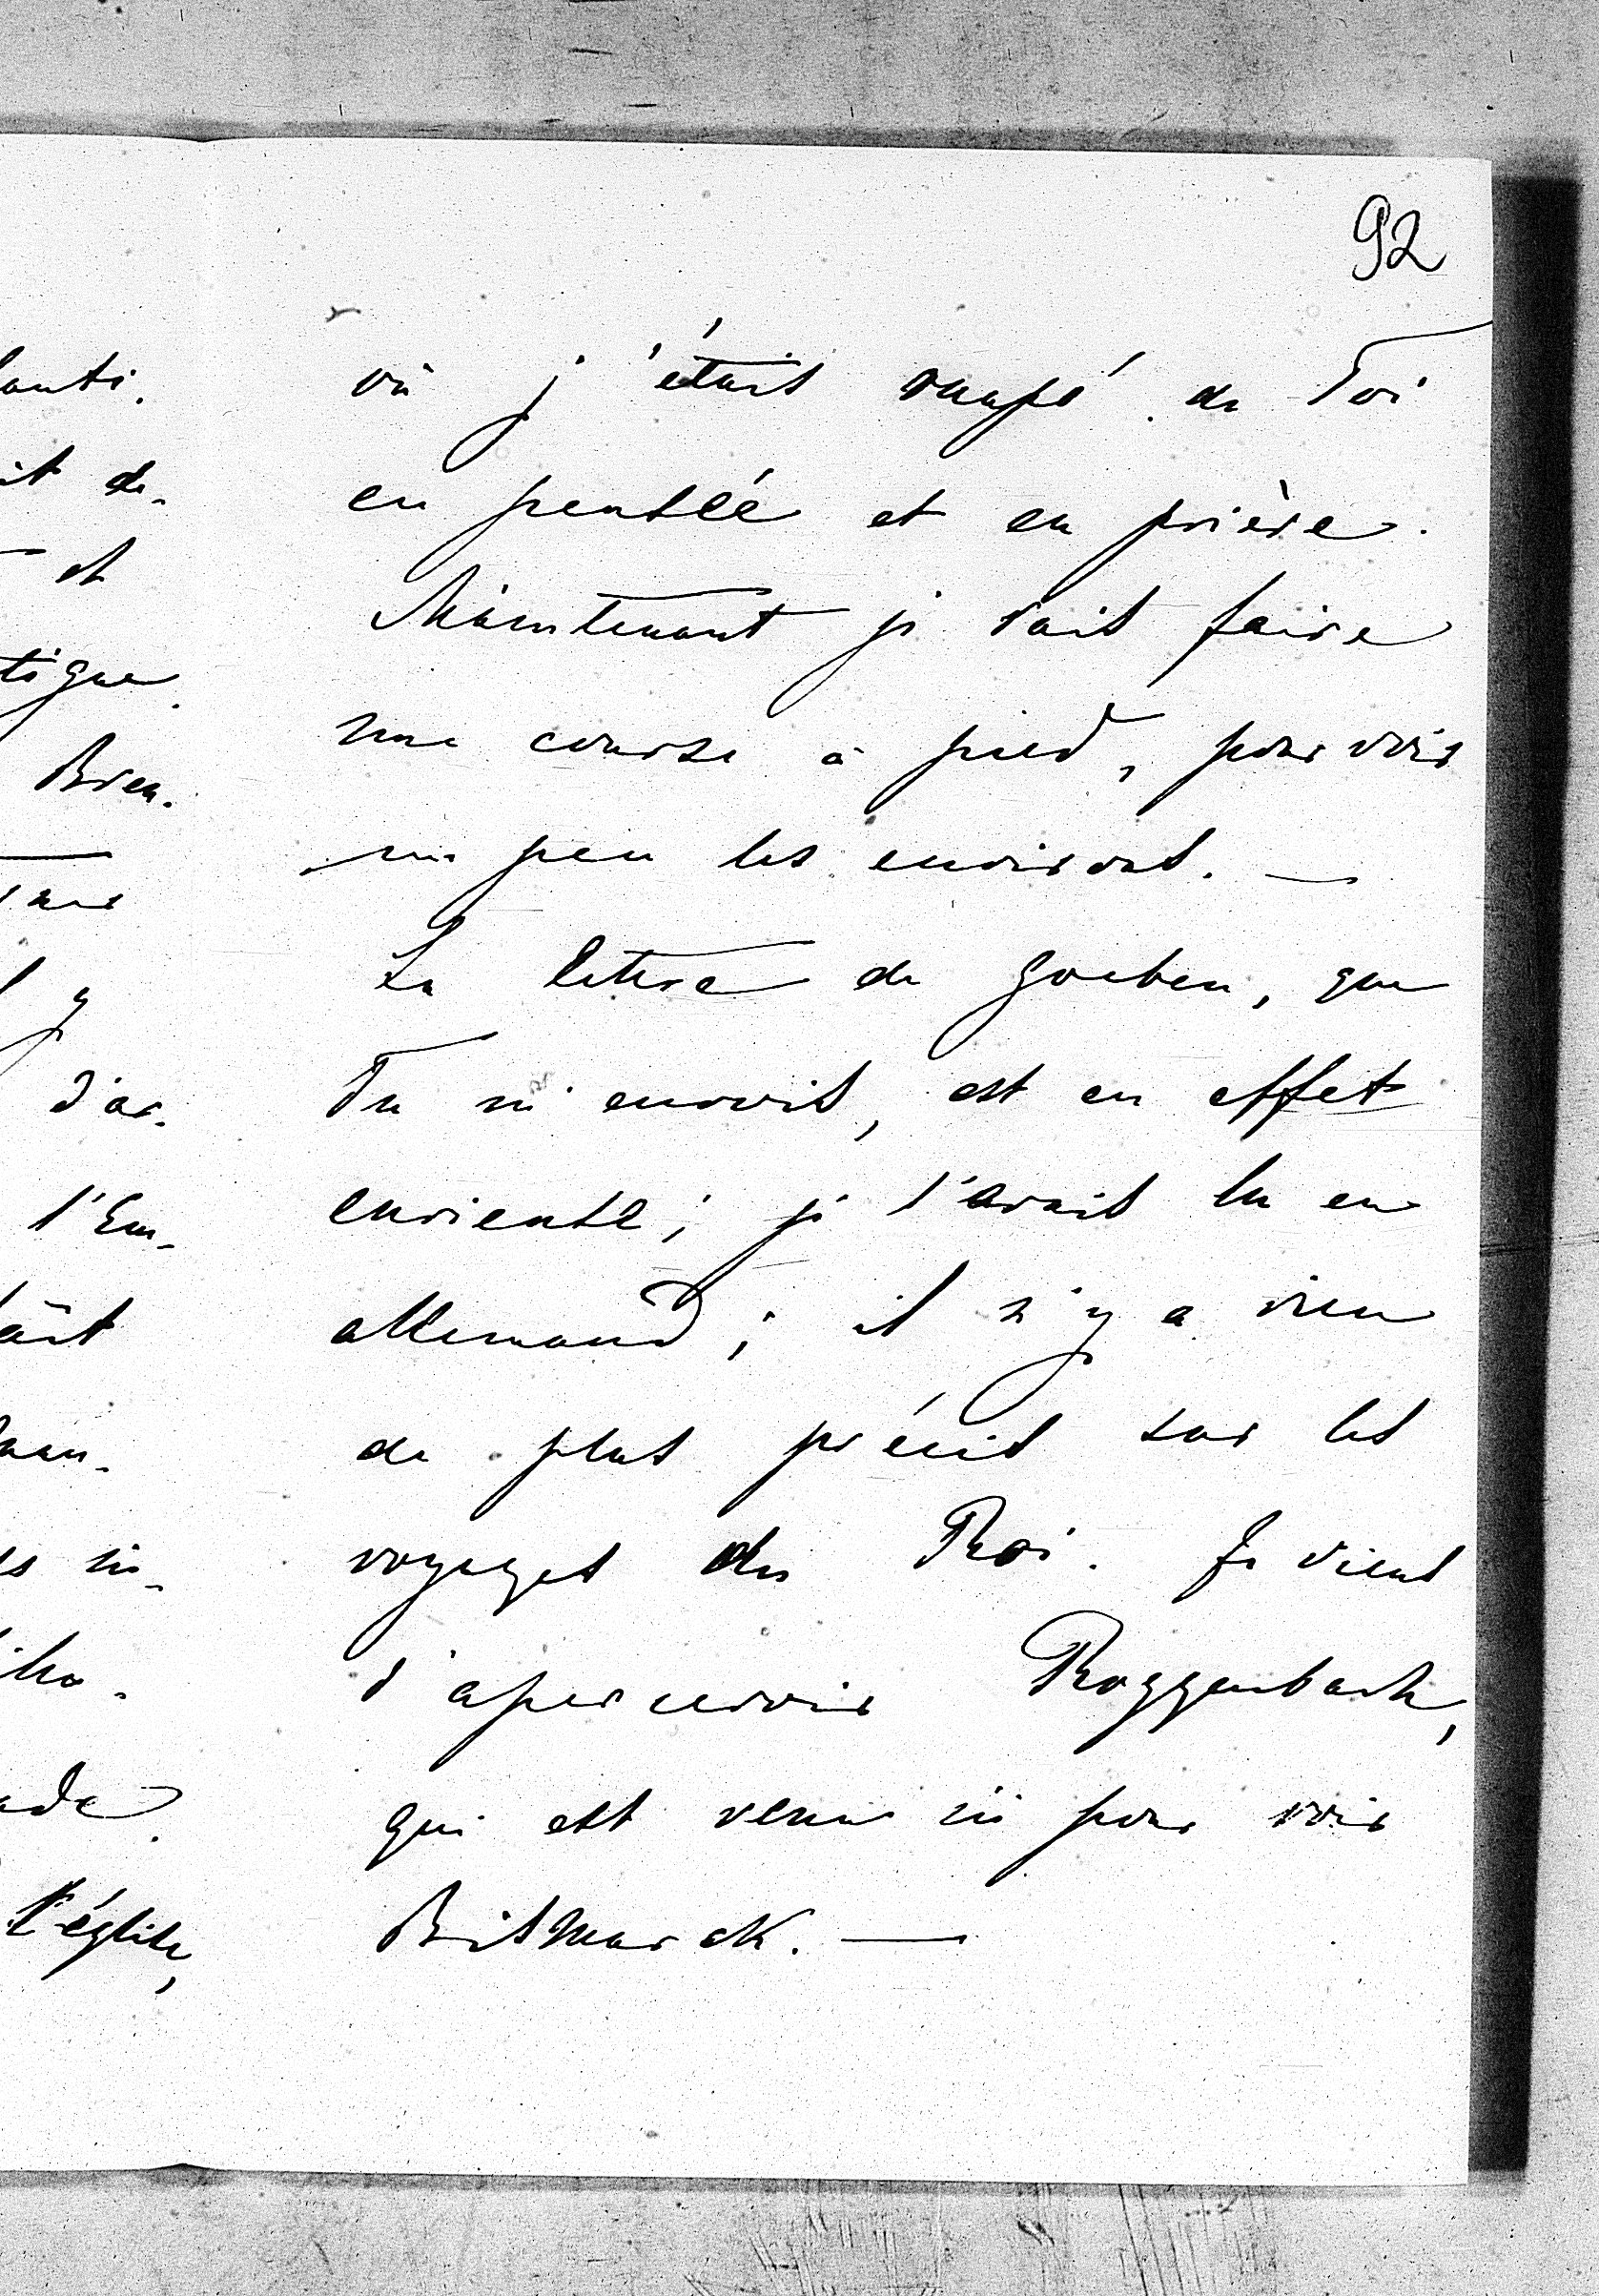 92
où j'étais occupé de Toi
en pensée et en prière.
Maintenant je vais faire
une course à pied, pour voir
un peu les environs. —
La lettre de Goeben, que
Tu m'envois, est en effet
curieuse; je l'avais lu en
allemand; il n'y a rien
de plus précis sur les
voyages du Roi. Je viens
d'apercevoir Roggenbach,
qui est venu ici pour voir
Bismarck. —
it de-
et
tigue.
Bien.
y
d'ar-
l'Em-
l'église,